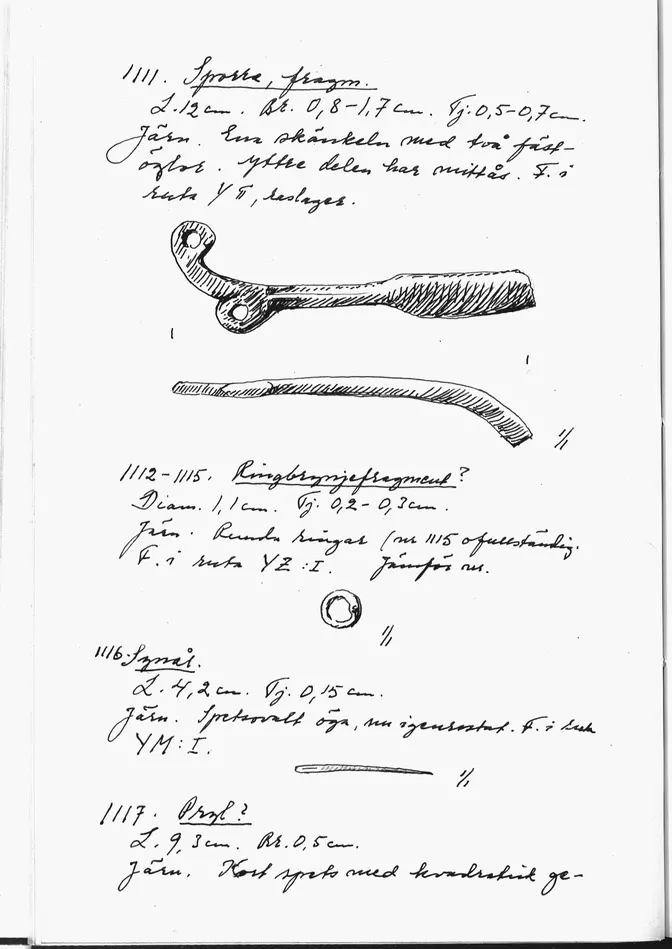 1111. Sporre, fragm.
L. 12 cm. Br. 0,8–1,7 cm. Tj. 0,5–0,7 cm.
Järn. Ena skänkeln med två fäst-
öglor. Yttre delen har mittås. F. i
ruta Y II, raslager.
1/1
1112–1115. Ringbrynjefragment?
Diam. 1,1 cm. Tj. 0,2–0,3 cm.
Järn. Runda ringar (nr 1115 ofullständig.
F. i ruta YZ:I. Jämför nr.
1/1
1116. Synål.
L. 4,2 cm. Tj. 0,15 cm.
Järn. Spetsovalt öga, nu igenrostat. F. i ruta
YM:I.
1/1
1117. Pryl?
L. 9,3 cm. Br. 0,5 cm.
Järn. Kort spets med kvadratisk ge-